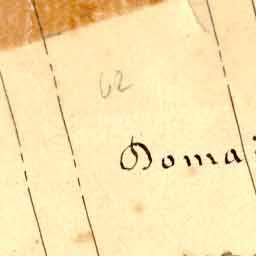 62
Domai